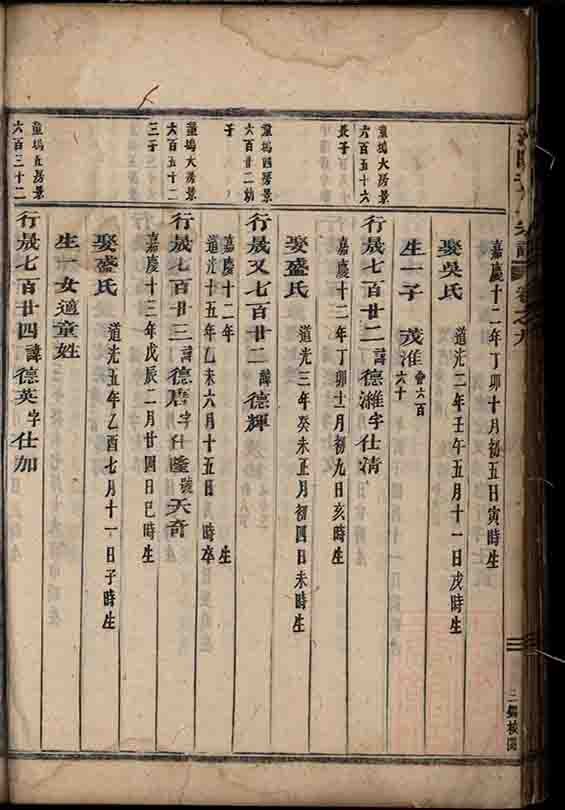 宗譜 卷之九
嘉慶十二年丁卯十月初五日寅時生
娶吳氏 道光二年壬午五月十一日戌時生
生一子 茂淮 會六百六十
童塢大房景六百五十六長子
行晟七百廿二 諱德濰字仕清
嘉慶十二年丁卯十一月初九日亥時生
娶盛氏 道光三年癸未正月初四日未時生
童塢四房景六百廿二幼子
行晟又七百廿二 諱德輝
嘉慶十二年 生
道光十五年乙未六月十五日 時卒
童塢大房景六百五十二三子
行晟七百廿三 諱德唐字仕隆號天奇
嘉慶十三年戊辰二月廿四日巳時生
娶盛氏 道光五年乙酉七月十一日子時生
生一女適童姓
童塢五房景六百三十二
行晟七百廿四 諱德英字仕加